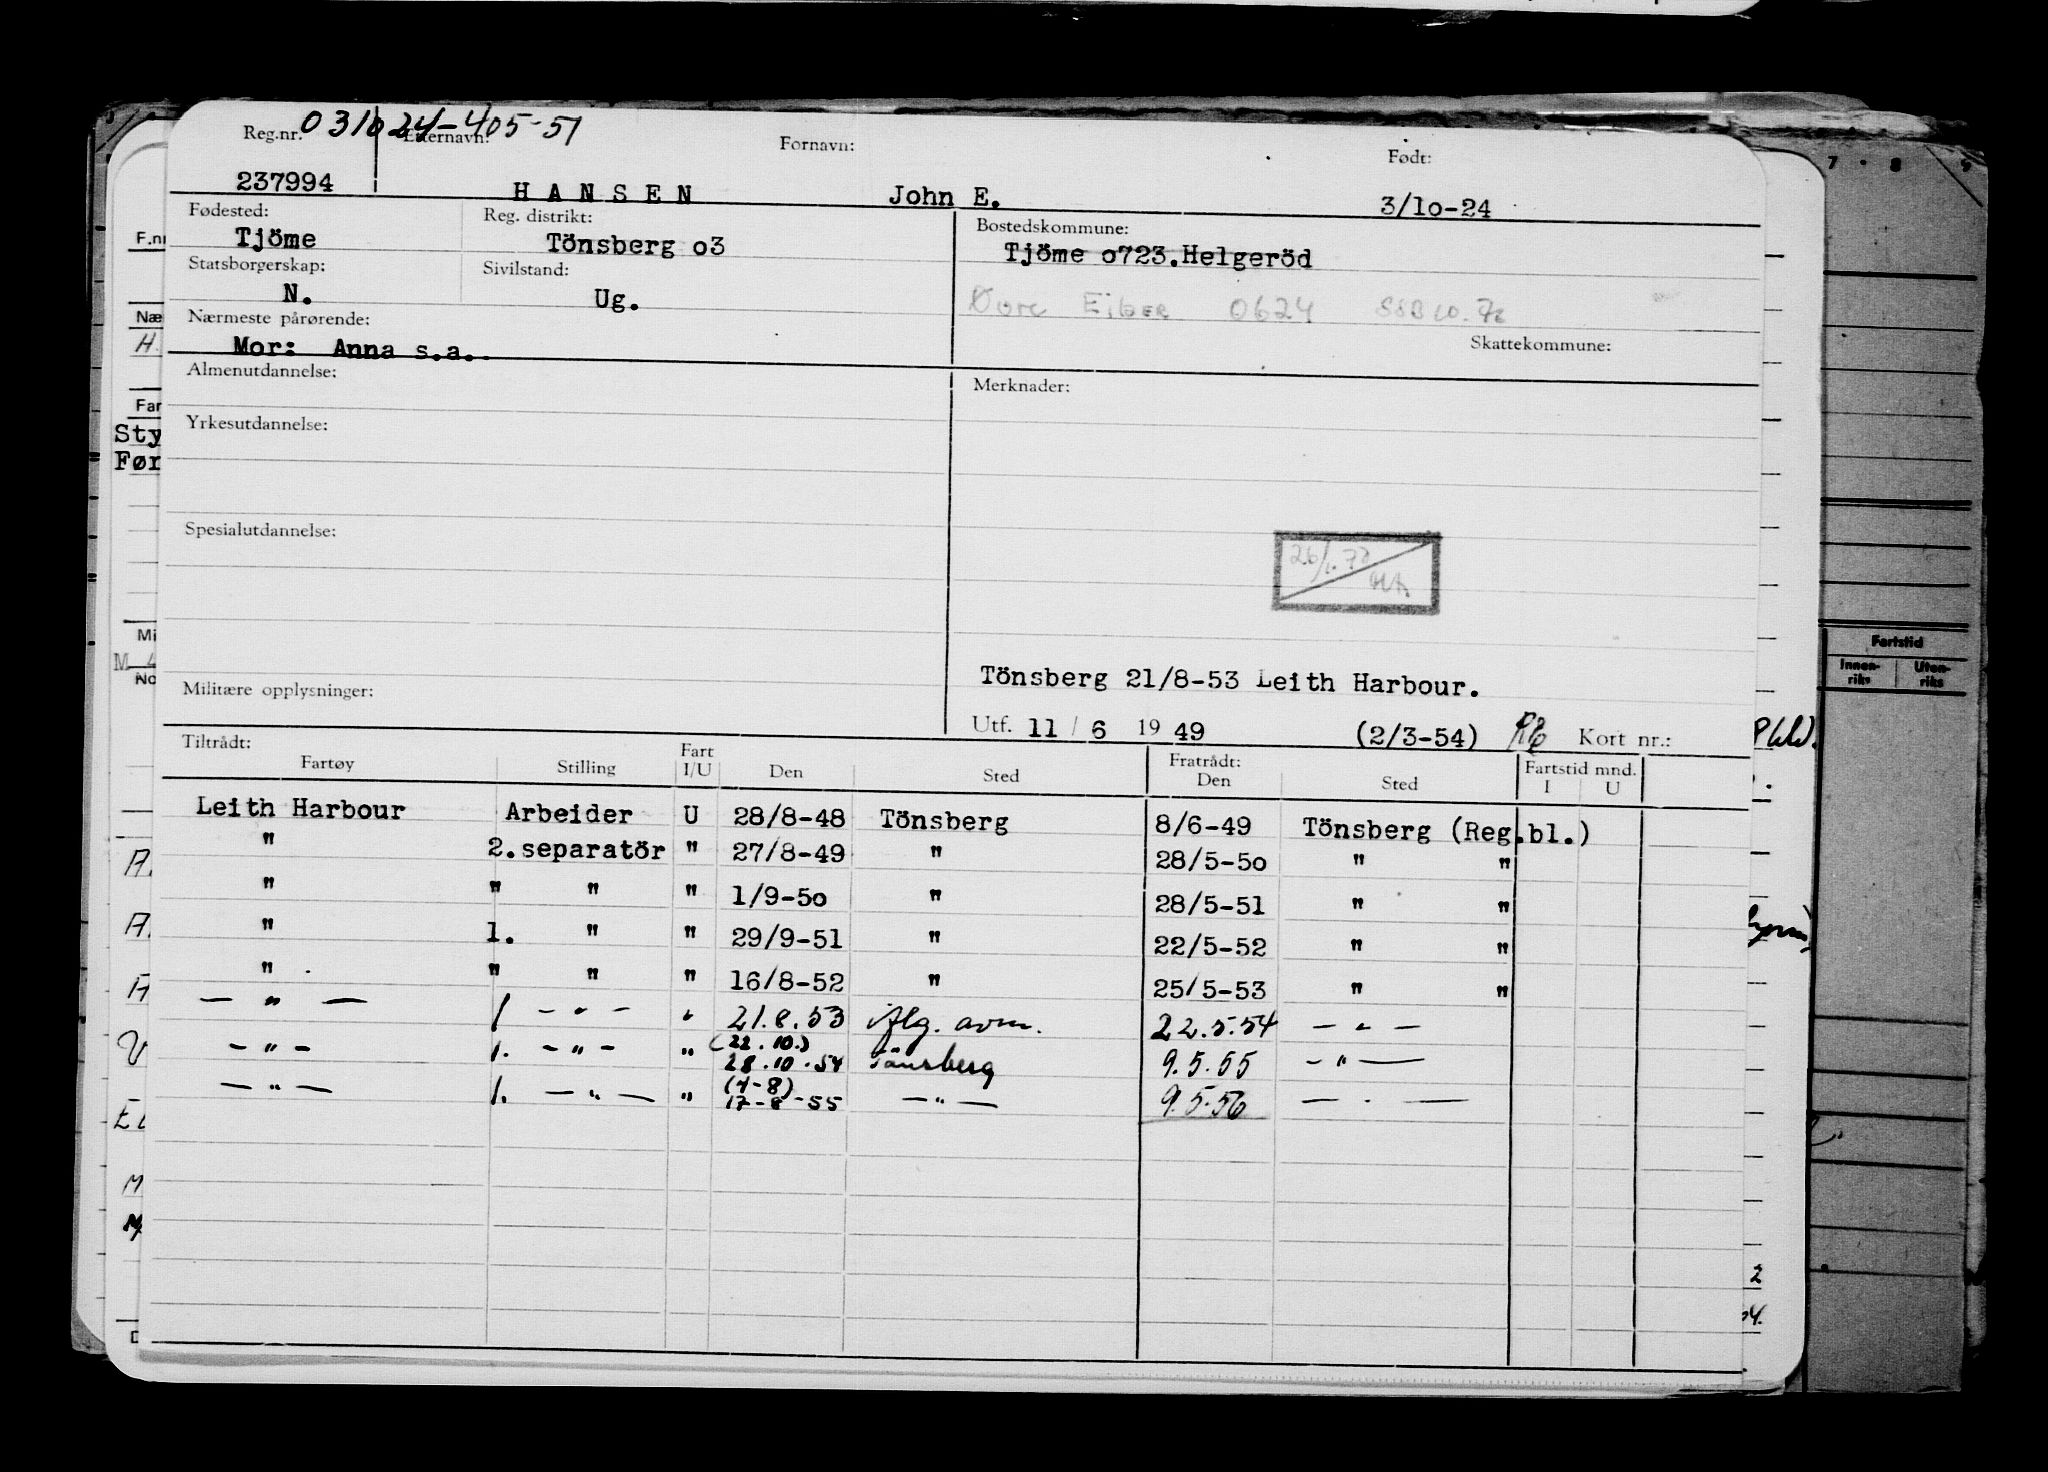 031024-405-51
Reg.nr. Etternavn: Fornavn: Født:
237994 HANSEN John E. 3/1o-24
Fødested: Reg. distrikt: Bostedskommune:
Tjöme Tönsberg o3 Tjöme o723.Helgeröd
Statsborgerskap: Sivilstand:
N. Ug.
Øvre Eiker 0624 SSB 10.72
Nærmeste pårørende: Skattekommune:
Mor: Anna s.a.
Almenutdannelse: Merknader:
Yrkesutdannelse:
Spesialutdannelse:
Tönsberg 21/8-53 Leith Harbour.
Militære opplysninger:
Utf. 11 / 6 19 49 (2/3-54) Kort nr.:
Tiltrådt: Fart Fratrådt: Fartstid mnd.
Fartøy Stilling I/U Den Sted Den Sted I U
Leith Harbour Arbeider U 28/8-48 Tönsberg 8/6-49 Tönsberg (Reg.bl.)
" 2.separatör " 27/8-49 " 28/5-5o " "
" " " " 1/9-5o " 28/5-51 " "
" 1. " " 29/9-51 " 22/5-52 " "
" " " " 16/8-52 " 25/5-53 " "
— " — 1 - " - " 21.8.53 iflg. avm. 22.5.54 — " —
(22.10.)
- " - 1. - " - " 28.10.54 Tönsberg 9.5.55 - " —
(4-8)
— " — 1. — " — " 17-8-55 — " — 9.5.56 — . —
F.nr
Næ
H.
Far
Sty
Før
Mi
No
A.
A.
Fartstid
Innen-
riks
Uten-
riks
7 8 9